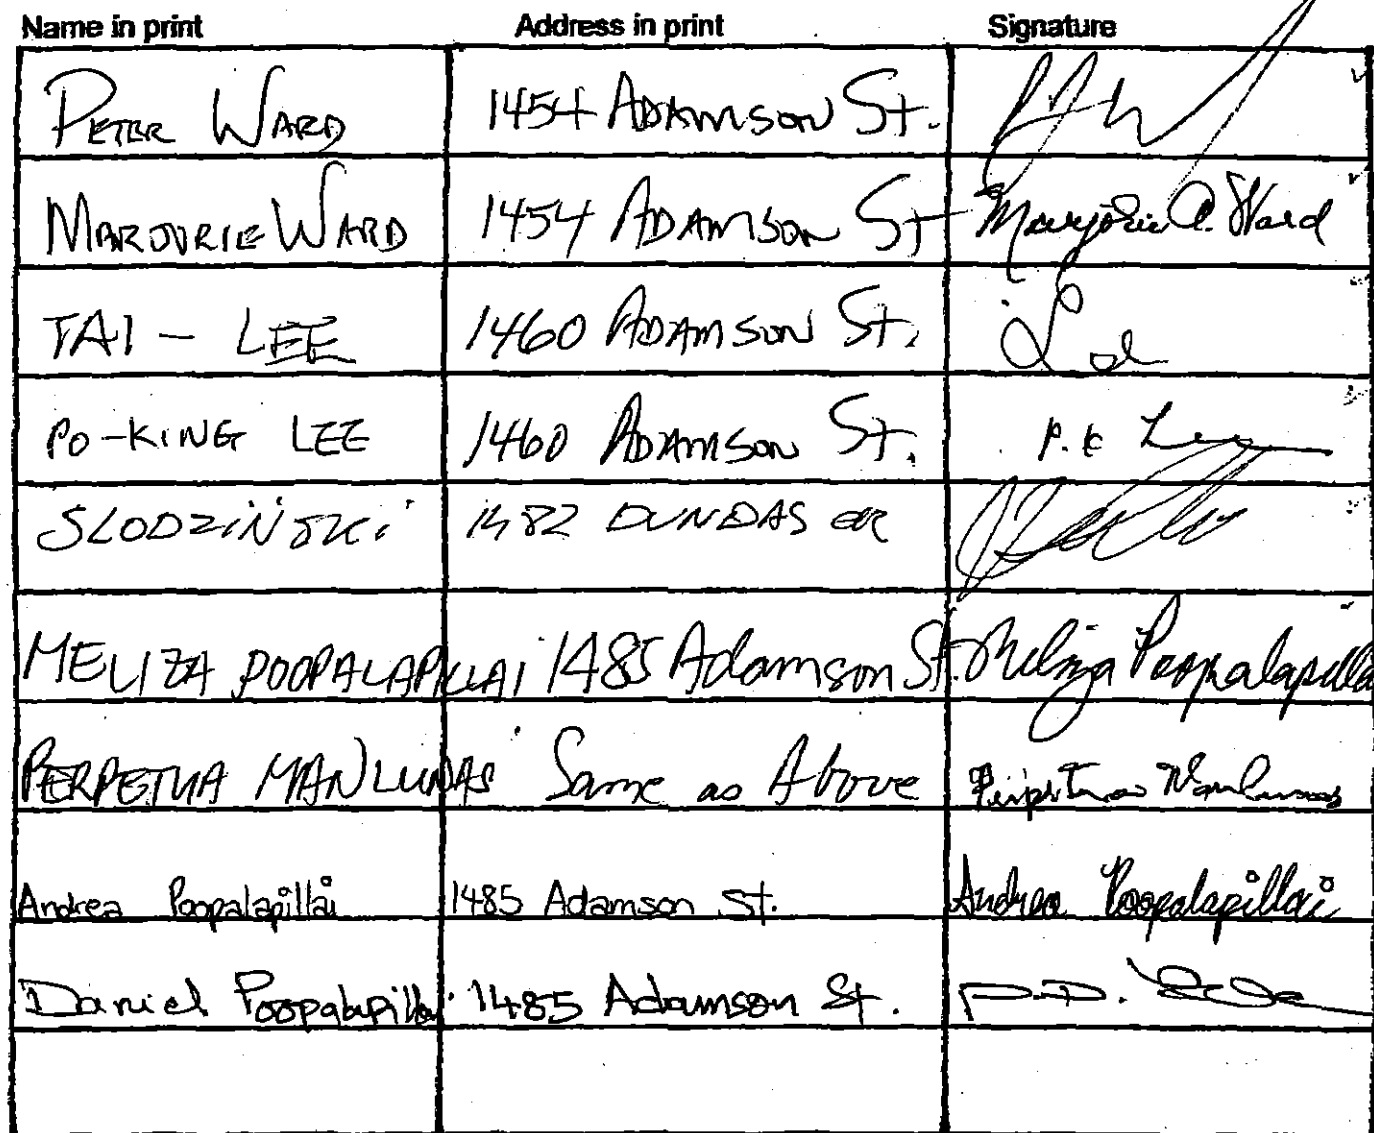 Name in print Address in print Signature
PETER WARD 1454 ADAMSON St.
MARJORIE WARD 1454 ADAMSON St Marjorie A. Ward
TAI - LEE 1460 ADAMSON St. Lee
PO-KING LEE 1460 ADAMSON St. P.K Lee
SLODZIŃSKI 1482 DUNDAS CR
MELIZA POOPALAPILLAI 1485 Adamson St. Meliza Poopalapillai
PERPETUA MANLUNAS Same as Above Perpetua Manlunas
Andrea Poopalapillai 1485 Adamson St. Andrea Poopalapillai
Daniel Poopalapillai 1485 Adamson St. P.D.